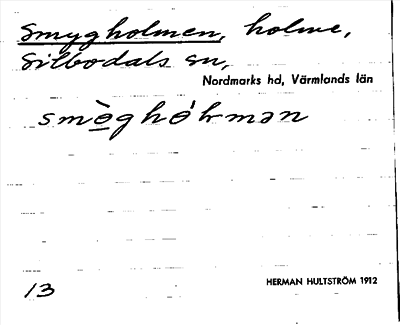 Smygholmen, holme,
Silbodals sn,
Nordmarks hd, Värmlands län
HERMAN HULTSTRÖM 1912
13